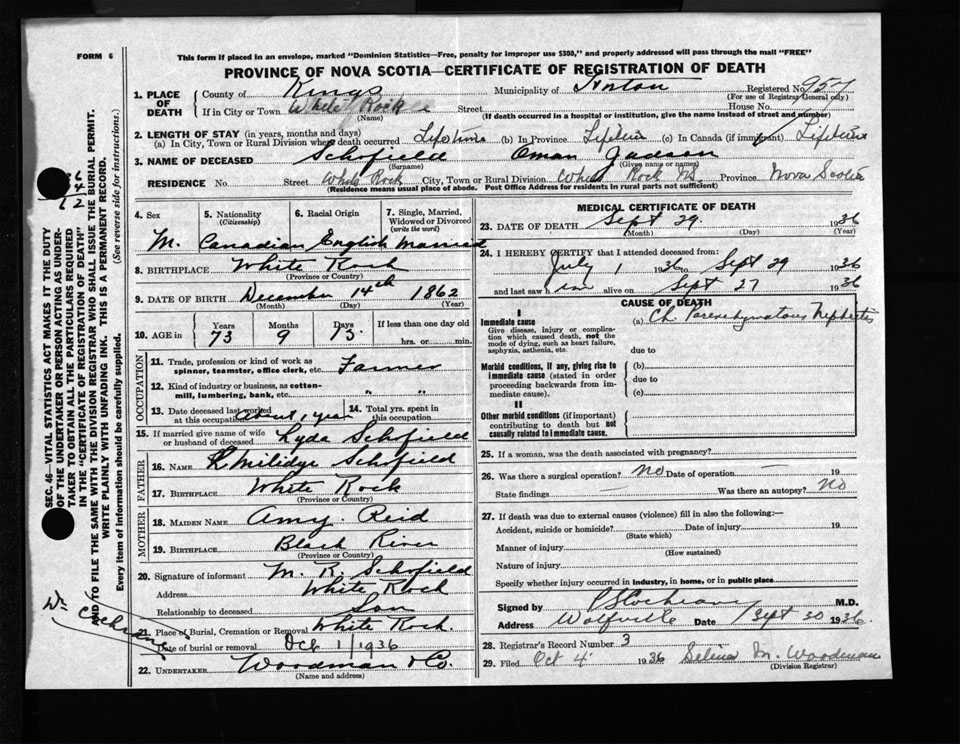 FORM 6
This form if placed in an envelope, marked "Dominion Statistics—Free, penalty for improper use $300," and properly addressed will pass through the mail "FREE"
PROVINCE OF NOVA SCOTIA—CERTIFICATE OF REGISTRATION OF DEATH
1. PLACE OF DEATH
County of Kings Municipality of Horton Registered No.
(For use of Registrar General only)
If in City or Town White Rock Street House No.
(Name) (If death occurred in a hospital or institution, give the name instead of street and number)
2. LENGTH OF STAY (in years, months and days)
(a) In City, Town or Rural Division where death occurred Lifetime (b) In Province Lifetime (c) In Canada (if immigrant) Lifetime
3. NAME OF DECEASED Schofield Oman Judson
(Surname) (Given name or names)
RESIDENCE No. Street White Rock City, Town or Rural Division White Rock NS. Province Nova Scotia
(Residence means usual place of abode. Post Office Address for residents in rural parts not sufficient)
4. Sex 5. Nationality (Citizenship) 6. Racial Origin 7. Single, Married, Widowed or Divorced (write the word)
M. Canadian English Married
8. BIRTHPLACE White Rock
(Province or Country)
9. DATE OF BIRTH December 14th 1862
(Month) (Day) (Year)
10. AGE in Years Months Days If less than one day old
73 9 15 hrs. or min.
OCCUPATION
11. Trade, profession or kind of work as spinner, teamster, office clerk, etc. Farmer
12. Kind of industry or business, as cotton-mill, lumbering, bank, etc. " "
13. Date deceased last worked at this occupation about 1 year
14. Total yrs. spent in this occupation
15. If married give name of wife or husband of deceased Lyda Schofield
FATHER
16. NAME Milidge Schofield
17. BIRTHPLACE White Rock
(Province or Country)
MOTHER
18. MAIDEN NAME Amy Reid
19. BIRTHPLACE Black River
(Province or Country)
20. Signature of informant M. R. Schofield
Address White Rock
Relationship to deceased Son
21. Place of Burial, Cremation or Removal White Rock.
Date of burial or removal Oct 1 1936
22. UNDERTAKER Woodman & Co.
(Name and address)
MEDICAL CERTIFICATE OF DEATH
23. DATE OF DEATH Sept 29. 1936
(Month) (Day) (Year)
24. I HEREBY CERTIFY that I attended deceased from:
July 1 1936 to Sept 29 1936
and last saw him alive on Sept 27 1936
CAUSE OF DEATH
I
Immediate cause (a) Ch. Parenchymatous Nephritis
Give disease, injury or complication which caused death, not the mode of dying, such as heart failure, asphyxia, asthenia, etc.
due to
Morbid conditions, if any, giving rise to immediate cause (stated in order proceeding backwards from immediate cause).
(b)
due to
(c)
II
Other morbid conditions (if important) contributing to death but not causally related to immediate cause.
25. If a woman, was the death associated with pregnancy?
26. Was there a surgical operation? No Date of operation — 19
State findings — Was there an autopsy? No
27. If death was due to external causes (violence) fill in also the following:—
Accident, suicide or homicide? Date of injury 19
(State which)
Manner of injury
(How sustained)
Nature of injury
Specify whether injury occurred in industry, in home, or in public place
Signed by Cochrane M.D.
Address Wolfville Date Sept 30 1936
28. Registrar's Record Number 3
29. Filed Oct 4 1936 Selina M. Woodman
(Division Registrar)
SEC. 46—VITAL STATISTICS ACT MAKES IT THE DUTY
OF THE UNDERTAKER OR PERSON ACTING AS UNDER-
TAKER TO OBTAIN ALL THE PARTICULARS REQUIRED
IN THE "CERTIFICATE OF REGISTRATION OF DEATH"
AND TO FILE THE SAME WITH THE DIVISION REGISTRAR WHO SHALL ISSUE THE BURIAL PERMIT.
WRITE PLAINLY WITH UNFADING INK. THIS IS A PERMANENT RECORD.
Every item of information should be carefully supplied. (See reverse side for instructions.)
Cochrane